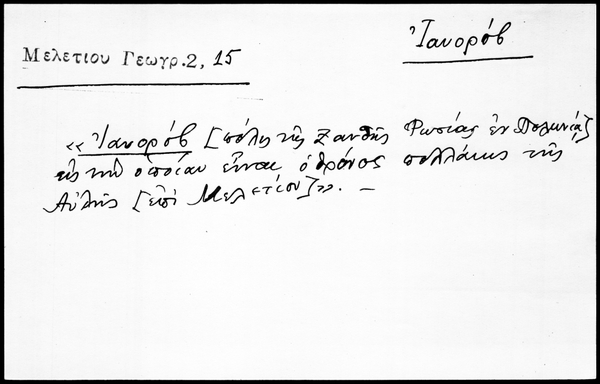 Ἰανορόβ
Μελετιου Γεωγρ. 2, 15
«Ἰανορόβ [πόλις τῆς Ξανθῆς Ρωσίας ἐν Πολωνίᾳ]
εἰς τὴν ὁποίαν εἶναι ὁ θρόνος πολλάκις τῆς
Αὐλῆς [ἐπὶ Μελετίου]». —